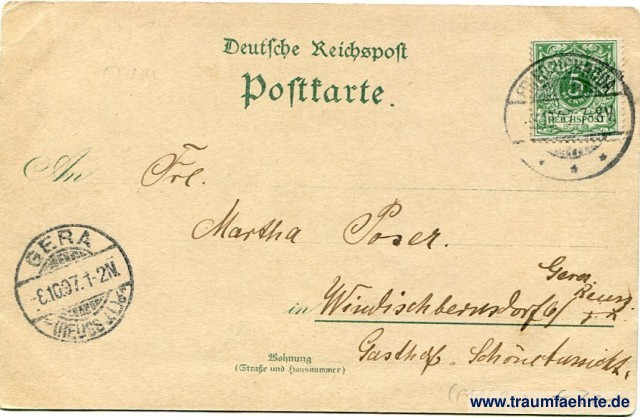 Deutsche Reichspost
Postkarte.
5
REICHSPOST
An Frl.
Martha Poser.
GERA
-6.10.97.1-2N.
(REUSS J.L.)
in Windischbernsdorf b/ Gera
Reuss
Gasthof Schöneaussicht.
Wohnung
(Straße und Hausnummer)
www.traumfaehrte.de